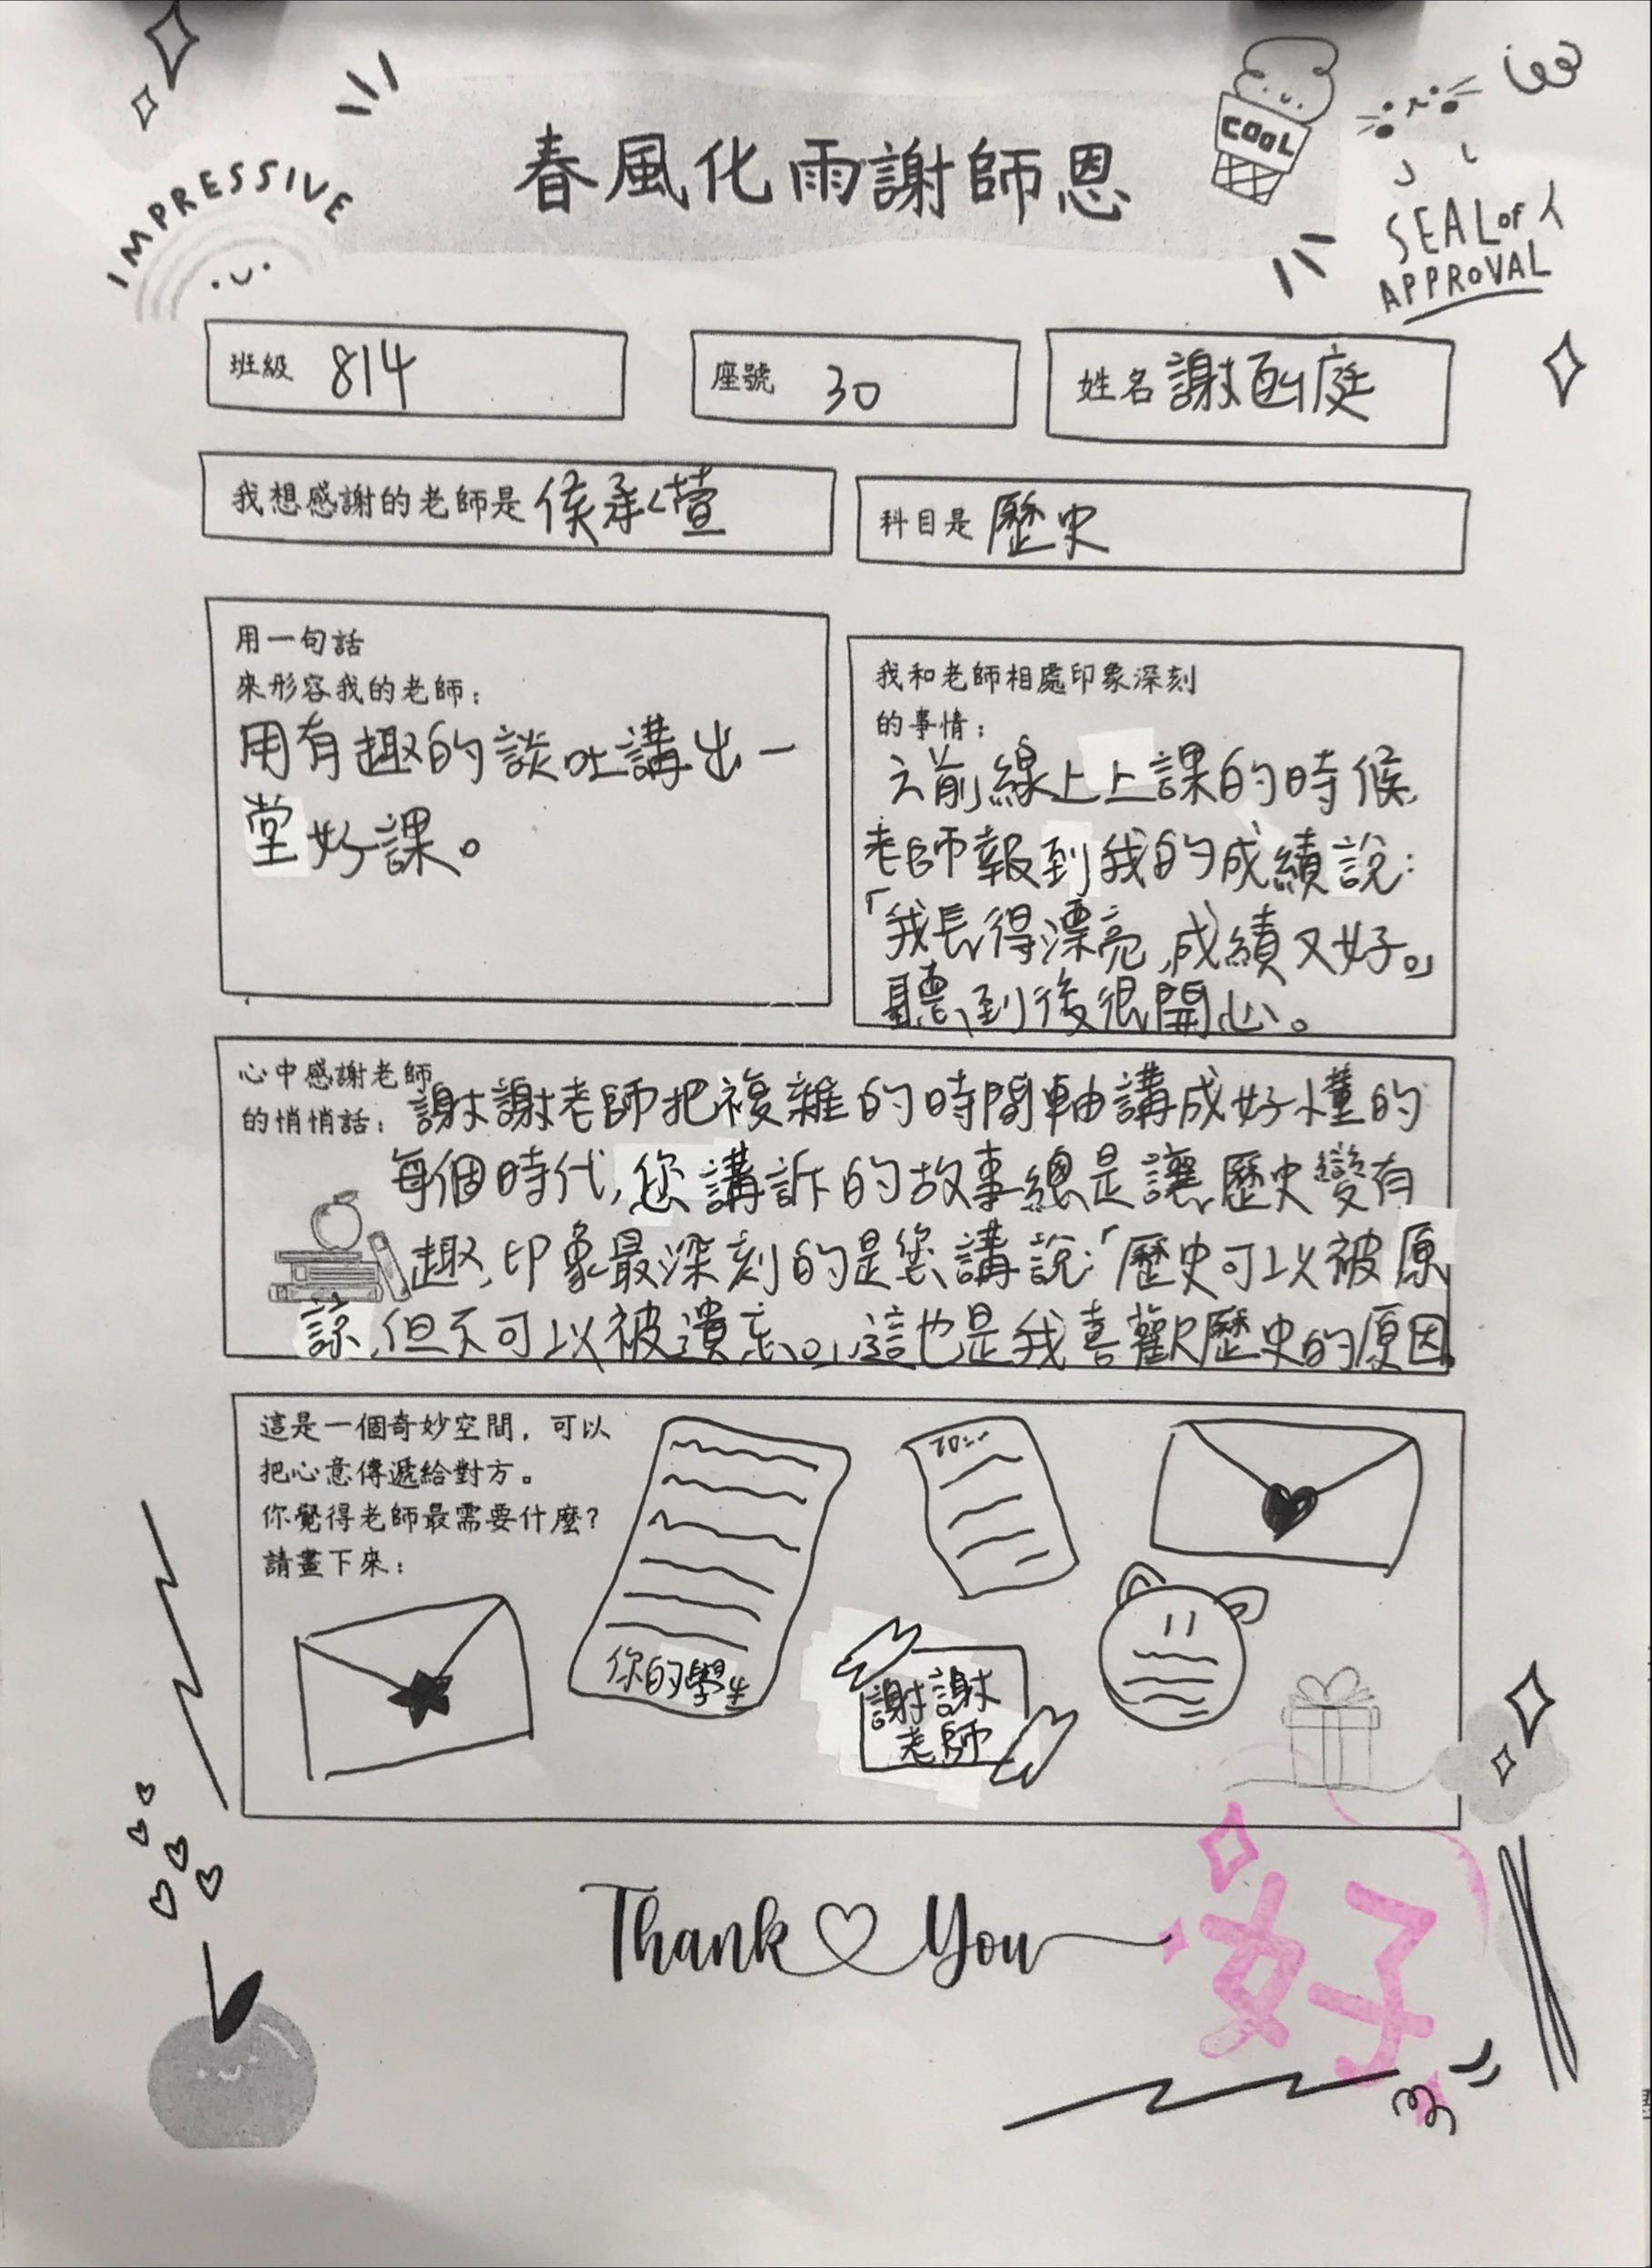 IMPRESSIVE
春風化雨謝師恩
COOL
SEAL of
APPROVAL
班級 814
座號 30
姓名 謝函庭
我想感謝的老師是 侯承萱
科目是 歷史
用一句話
來形容我的老師:
用有趣的談吐講出一
堂好課。
我和老師相處印象深刻
的事情:
之前線上上課的時候,
老師報到我的成績說:
「我長得漂亮,成績又好。」
聽到後很開心。
心中感謝老師
的悄悄話: 謝謝老師把複雜的時間軸講成好懂的
每個時代,您講訴的故事總是讓歷史變有
趣,印象最深刻的是您講說:「歷史可以被原
諒,但不可以被遺忘。」,這也是我喜歡歷史的原因
這是一個奇妙空間,可以
把心意傳遞給對方。
你覺得老師最需要什麼?
請畫下來:
TO:
你的學生
謝謝
老師
Thank You
好